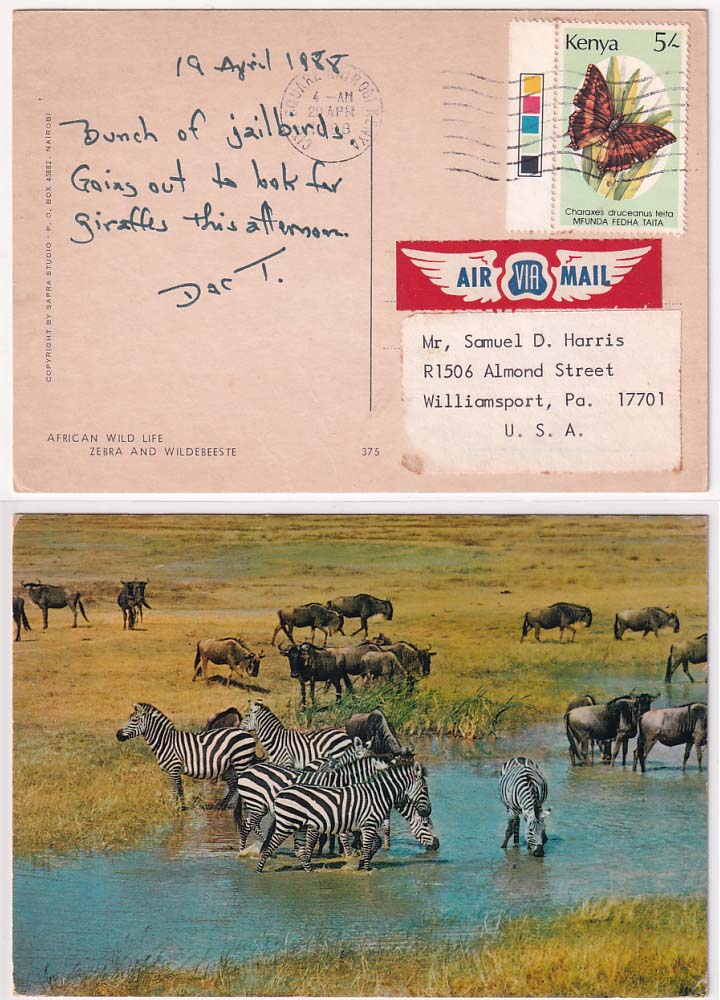 19 April 1988
Bunch of jailbirds.
Going out to look for
giraffes this afternoon.
Doc T.
COPYRIGHT BY SAPRA STUDIO - P. O. BOX 45882, NAIROBI
AFRICAN WILD LIFE
ZEBRA AND WILDEBEESTE
375
CITY SQUARE NAIROBI KENYA
4 - AM
20 APR
Kenya 5/-
Charaxes druceanus teita
MFUNDA FEDHA TAITA
AIR VIA MAIL
Mr, Samuel D. Harris
R1506 Almond Street
Williamsport, Pa. 17701
U. S. A.